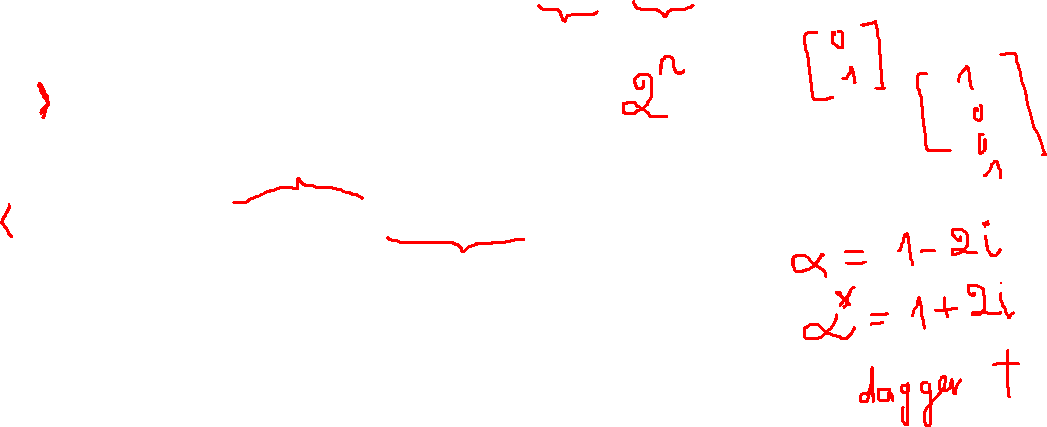 2^n
[0
1]
[1
0
0
1]
>
<
α = 1 - 2i
α* = 1 + 2i
dagger †